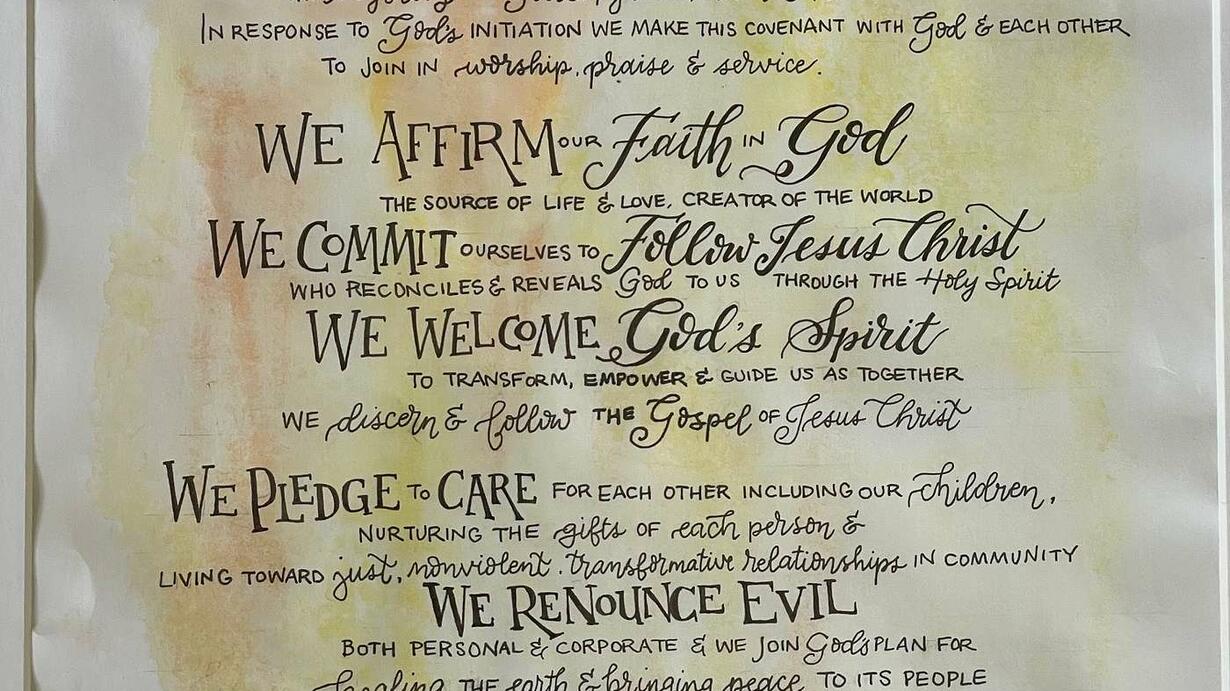 IN RESPONSE TO God's INITIATION WE MAKE THIS COVENANT WITH God & EACH OTHER
TO JOIN IN worship, praise & service.
WE AFFIRM OUR Faith IN God
THE SOURCE OF LIFE & LOVE, CREATOR OF THE WORLD
WE COMMIT OURSELVES TO Follow Jesus Christ
WHO RECONCILES & REVEALS God TO US THROUGH THE Holy Spirit
WE WELCOME God's Spirit
TO TRANSFORM, EMPOWER & GUIDE US AS TOGETHER
WE discern & follow THE Gospel OF Jesus Christ
WE PLEDGE TO CARE FOR EACH OTHER INCLUDING OUR children,
NURTURING THE gifts OF each person &
LIVING TOWARD just, nonviolent, transformative relationships IN COMMUNITY
WE RENOUNCE EVIL
BOTH PERSONAL & CORPORATE & WE JOIN God's PLAN FOR
healing THE earth & bringing peace TO ITS PEOPLE